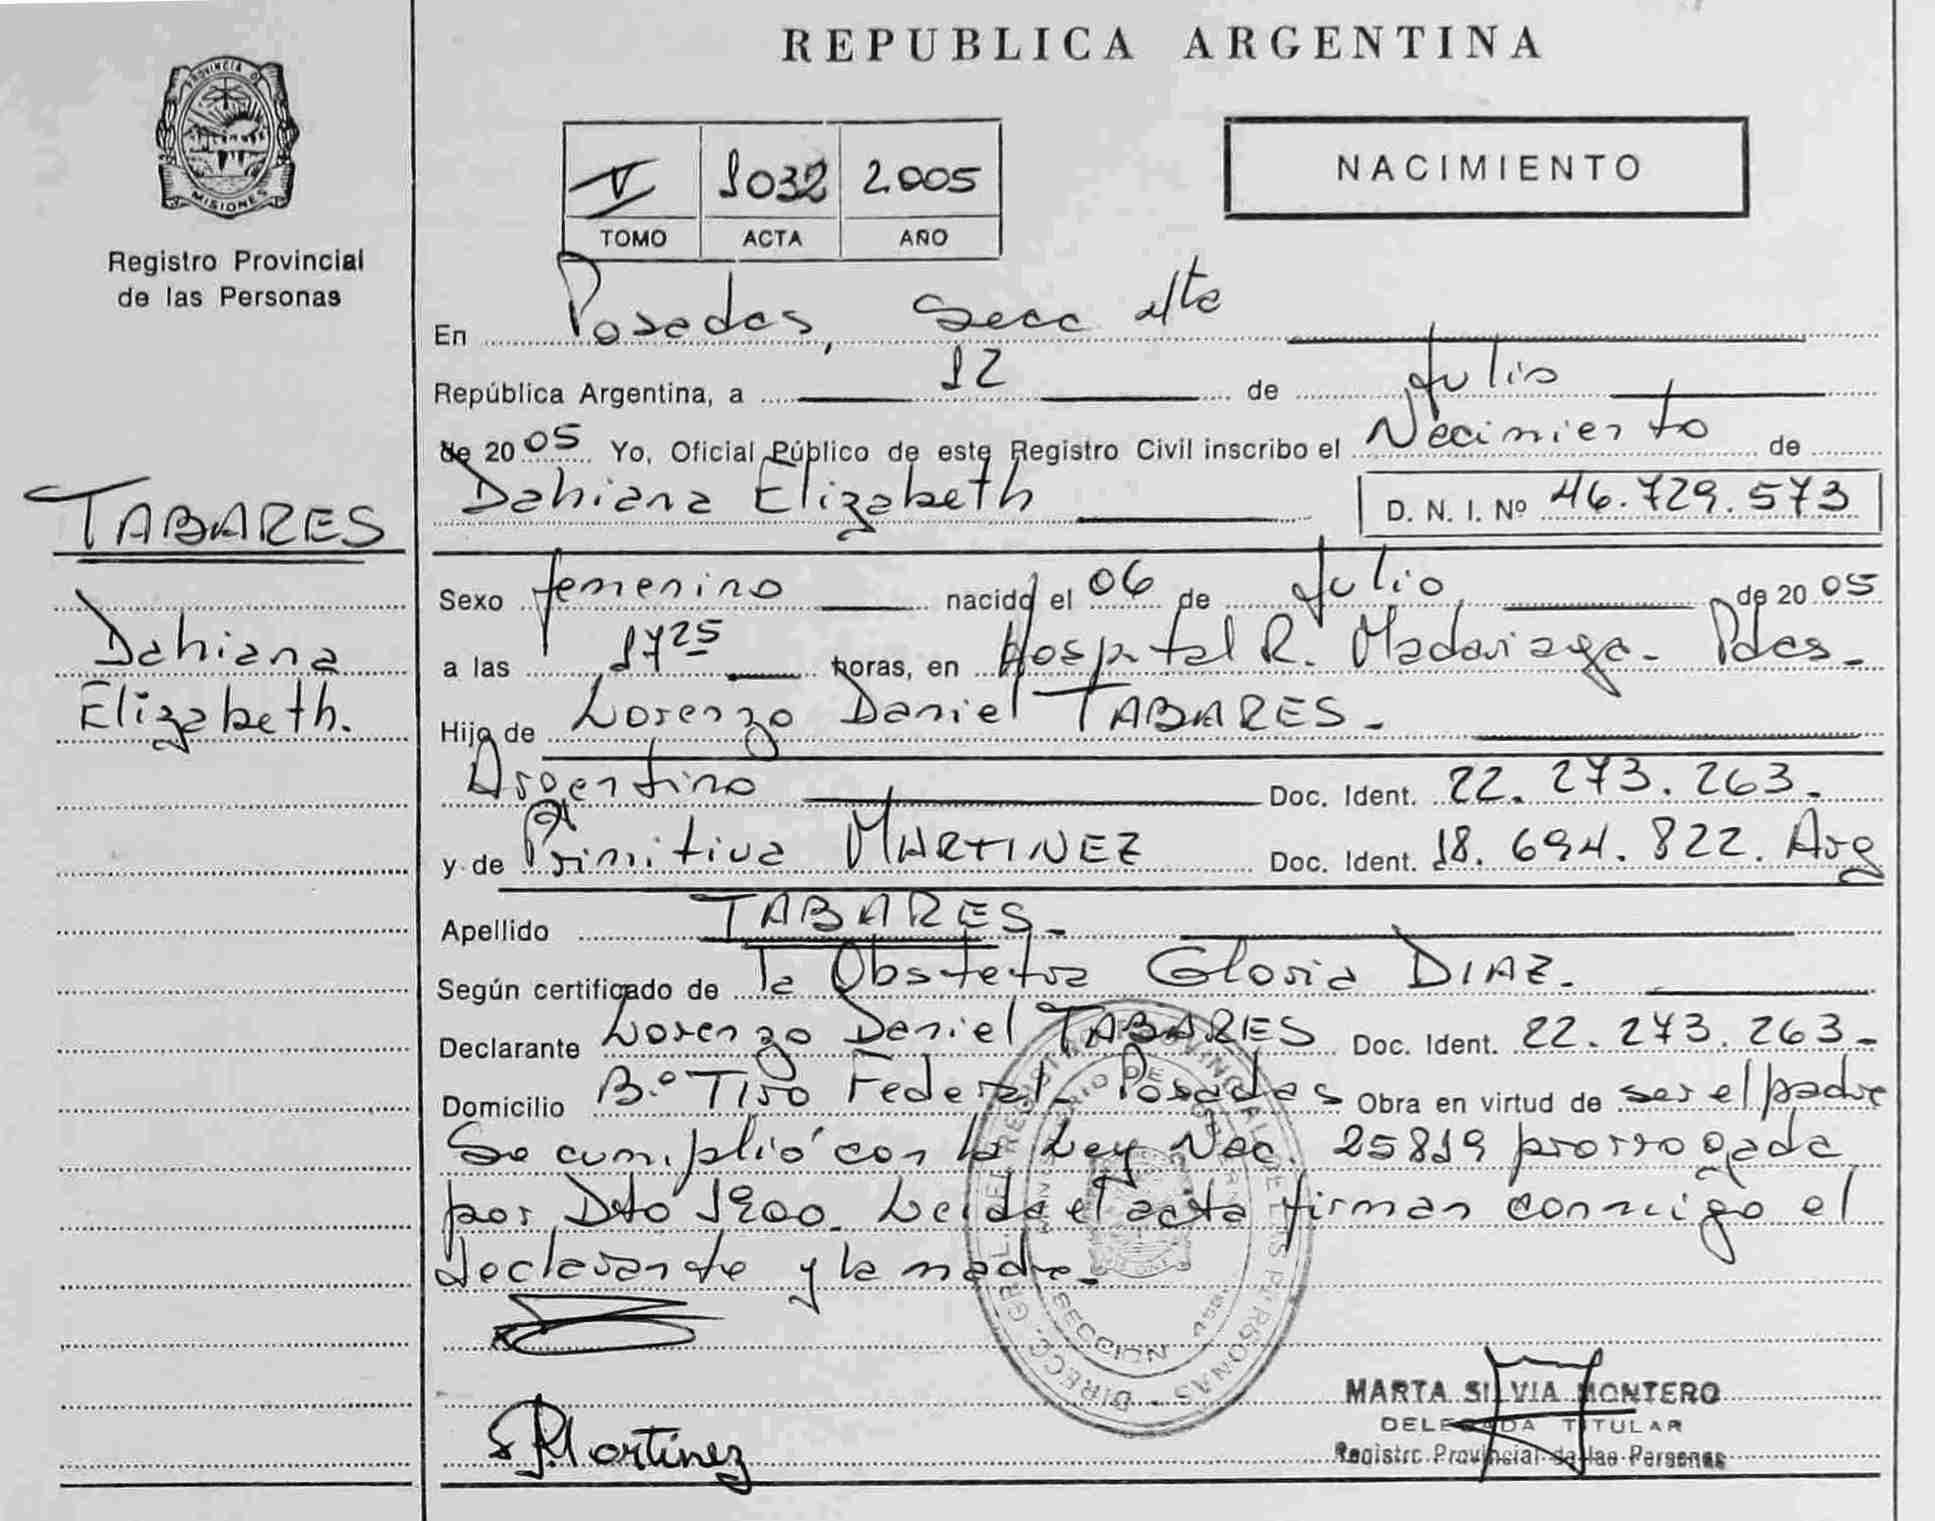 REPUBLICA ARGENTINA
PROVINCIA DE
MISIONES
Registro Provincial
de las Personas
V 1032 2005
TOMO ACTA AÑO
NACIMIENTO
En Posadas, Secc 4ta
República Argentina, a 12 de Julio
de 2005 Yo, Oficial Público de este Registro Civil inscribo el Nacimiento de
Dahiana Elizabeth D. N. I. Nº 46.729.573
TABARES
Dahiana
Elizabeth.
Sexo femenino nacido el 06 de Julio de 2005
a las 1725 horas, en Hospital R. Madariaga - Pdas.
Hijo de Lorenzo Daniel TABARES.
Argentino Doc. Ident. 22.273.263.
y de Primitiva MARTINEZ Doc. Ident. 18.694.822. Arg
Apellido TABARES.
Según certificado de la Obstetra Gloria DIAZ.
Declarante Lorenzo Daniel TABARES Doc. Ident. 22.273.263-
Domicilio B.º Tiro Federal - Posadas Obra en virtud de ser el padre
Se cumplió con la Ley Nac. 25819 prorrogada
por Dto 1900. Leida el acta firman conmigo el
declarante y la madre.
Martínez
MARTA SILVIA MONTERO
DELEGADA TITULAR
Registro Provincial de las Personas